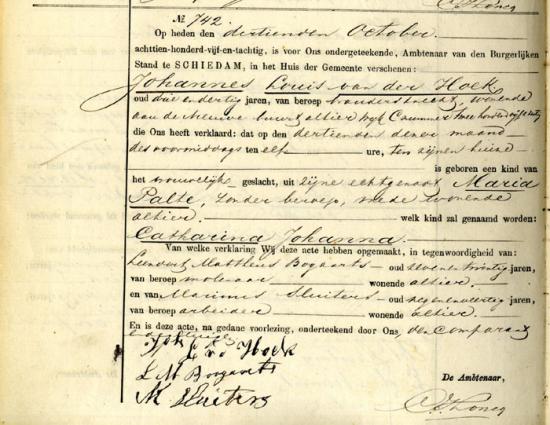 № 742.
Op heden den dertienden October
achttien-honderd-vijf-en-tachtig, is voor Ons ondergeteekende, Ambtenaar van den Burgerlijken
Stand te SCHIEDAM, in het Huis der Gemeente verschenen:
Johannes Louis van der Hoek
oud drie en dertig jaren, van beroep brandersknecht, wonende
aan de Nieuwe buurt alhier Wijk C nummer twee honderd
die Ons heeft verklaard: dat op den dertienden dezer maand
des voormiddags ten elf ure, ten zijnen huize
is geboren een kind van
het vrouwelijk geslacht, uit zijne echtgenoot Maria
Palte, zonder beroep, mede wonende
alhier welk kind zal genaamd worden:
Catharina Johanna.
Van welke verklaring Wij deze acte hebben opgemaakt, in tegenwoordigheid van:
Leendert Mattheus Bogaarts oud jaren,
van beroep molenaar wonende alhier
en van Marinus Sluiters oud negenenveertig jaren,
van beroep arbeider wonende alhier.
En is deze acte, na gedane voorlezing, onderteekend door Ons, den comparant
en de getuigen
Joh L v d Hoek
L M Bogaarts
M Sluiters
De Ambtenaar,